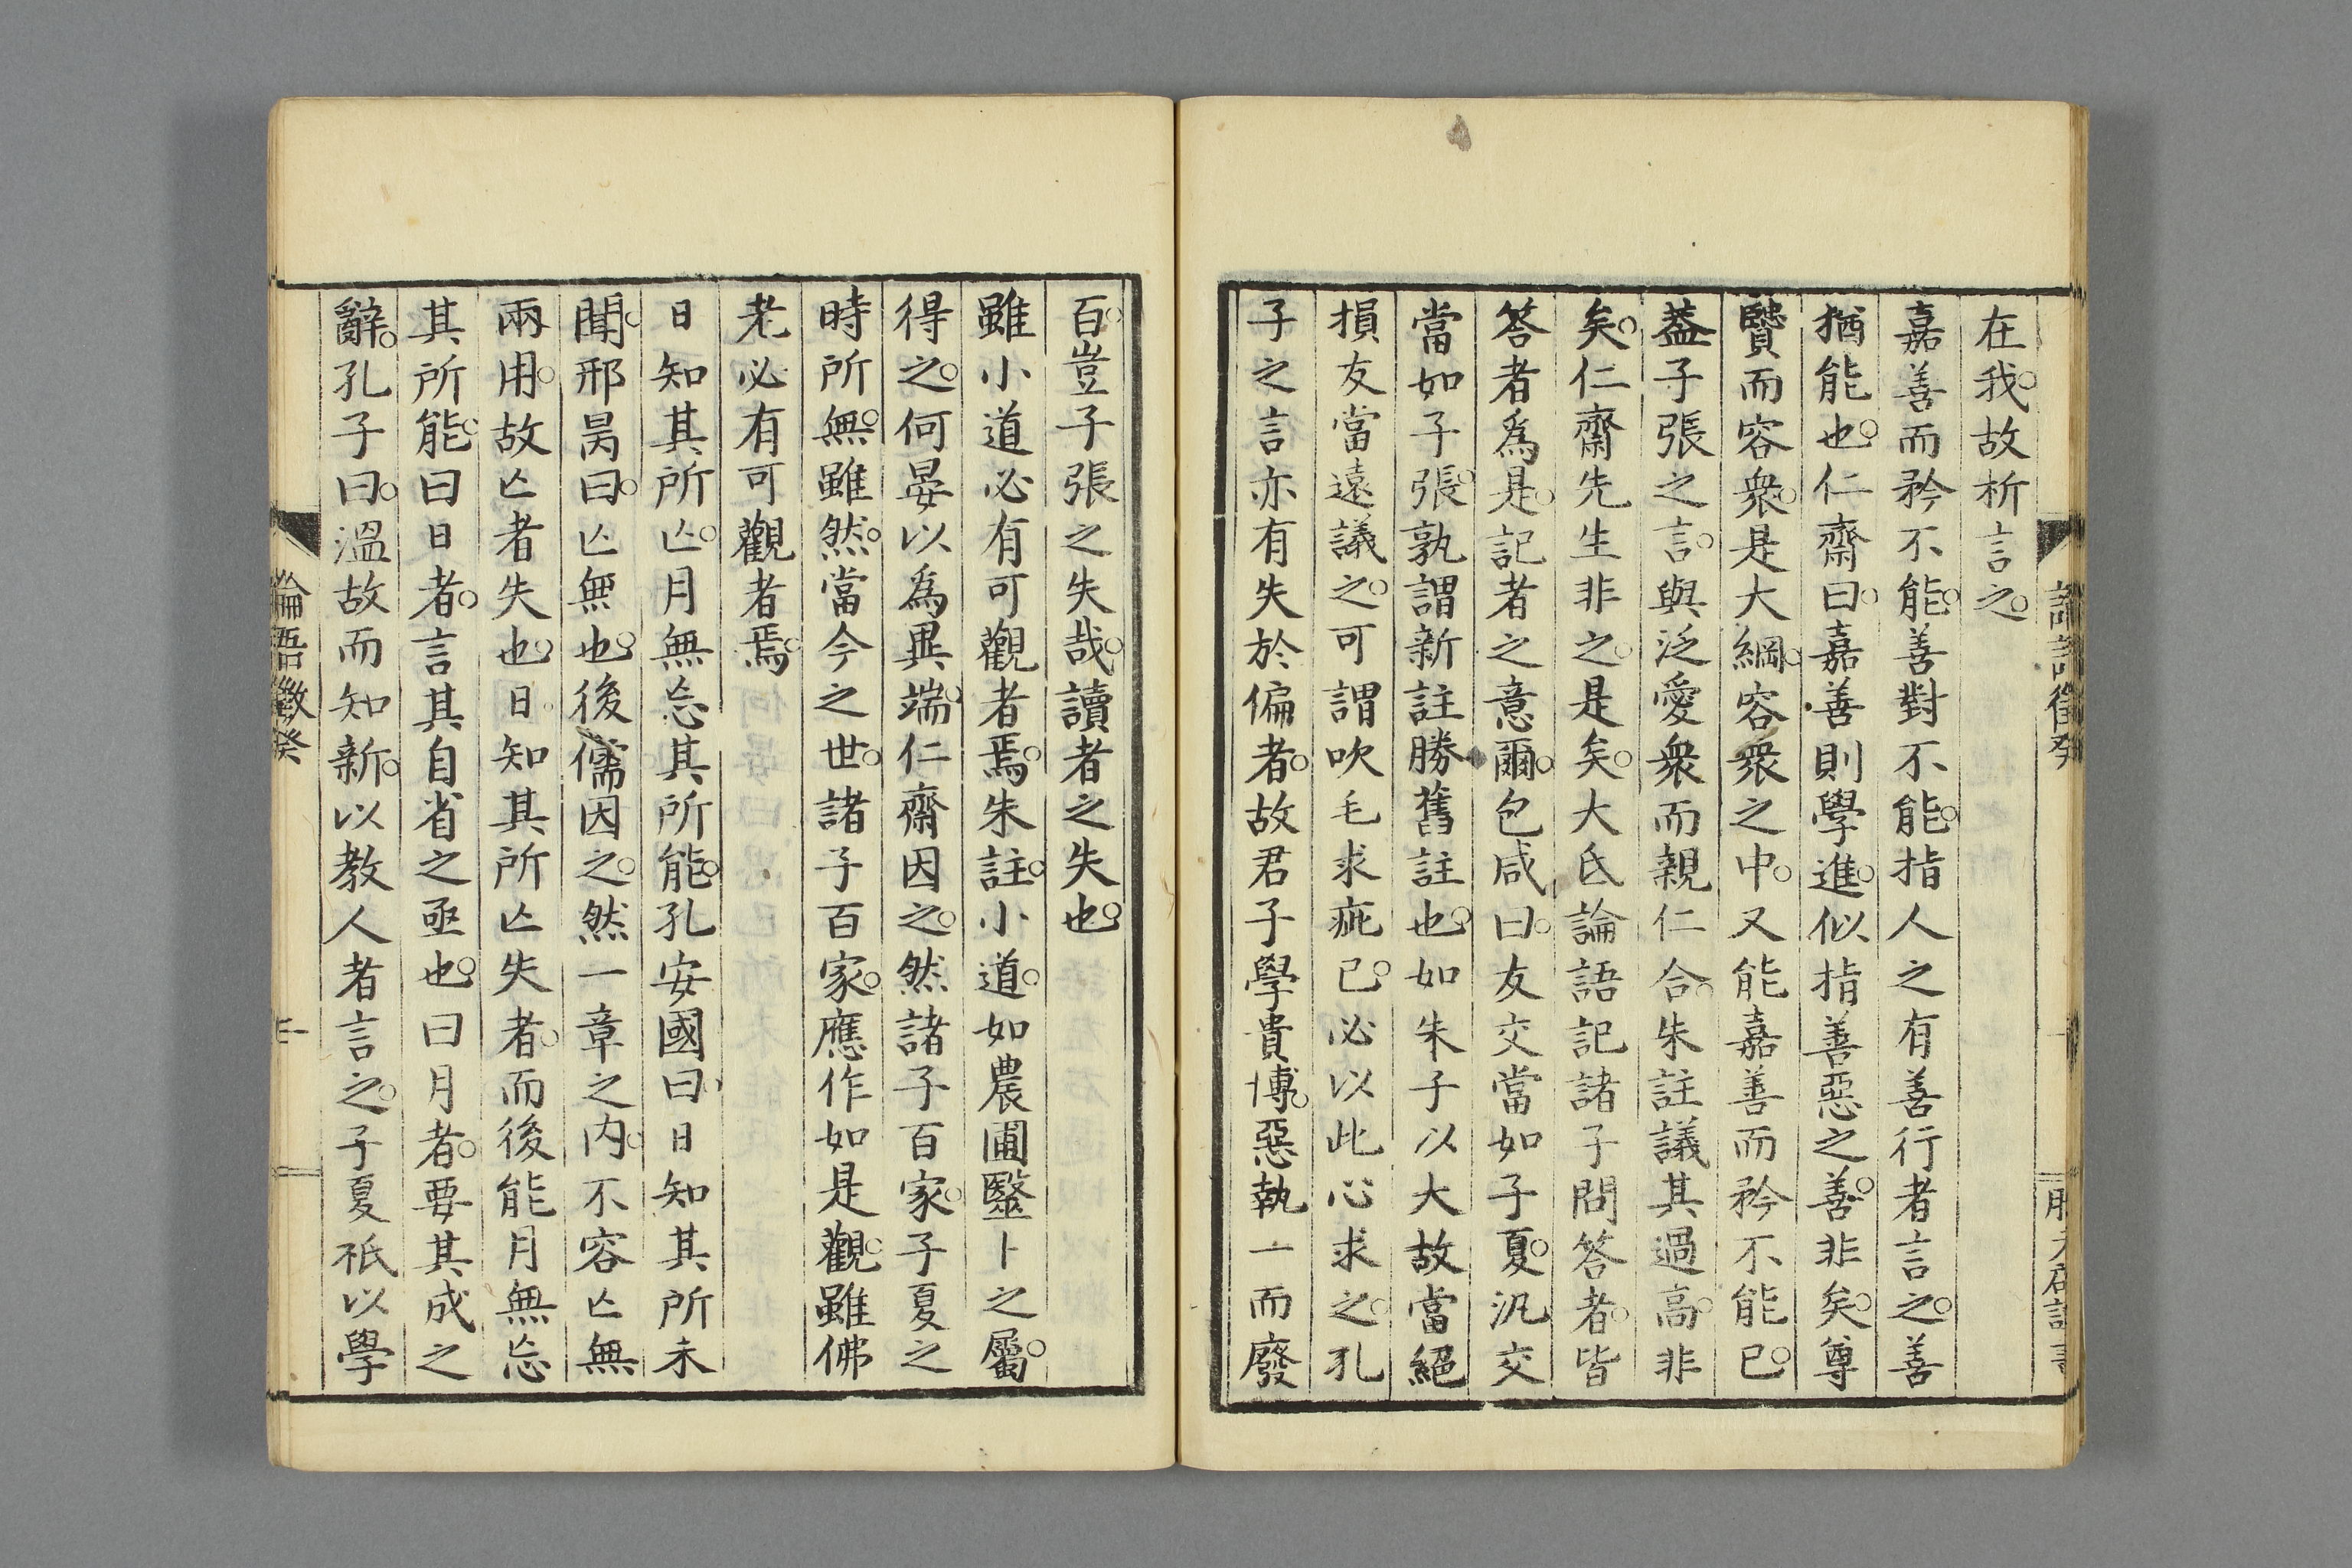 在我。故析言之。
嘉善而矜不能。善對不能。指人之有善行者言之。善
猶能也。仁齋曰。嘉善則學進。似指善惡之善。非矣。尊
賢而容衆。是大綱。容衆之中。又能嘉善而矜不能已。
蓋子張之言。與泛愛衆而親仁合。朱註議其過高。非
矣。仁齋先生非之。是矣。大氐論語記諸子問答者。皆
答者爲是。記者之意爾。包咸曰。友交當如子夏。汎交
當如子張。孰謂新註勝舊註也。如朱子以大故當絕
損友當遠議之。可謂吹毛求疵已。必以此心求之。孔
子之言亦有失於偏者。故君子學貴博。惡執一而廢
百。豈子張之失哉。讀者之失也。
雖小道必有可觀者焉。朱註。小道。如農圃醫卜之屬。
得之。何晏以爲異端。仁齋因之。然諸子百家。子夏之
時所無。雖然。當今之世。諸子百家。應作如是觀。雖佛
老必有可觀者焉。
日知其所亡。月無忘其所能。孔安國曰。日知其所未
聞。邢昺曰。亡無也。後儒因之。然一章之内。不容亡無
兩用。故亡者失也。日知其所亡失者。而後能月無忘
其所能。曰日者。言其自省之亟也。曰月者。要其成之
辭。孔子曰。溫故而知新。以教人者言之。子夏祇以學
論語徵癸